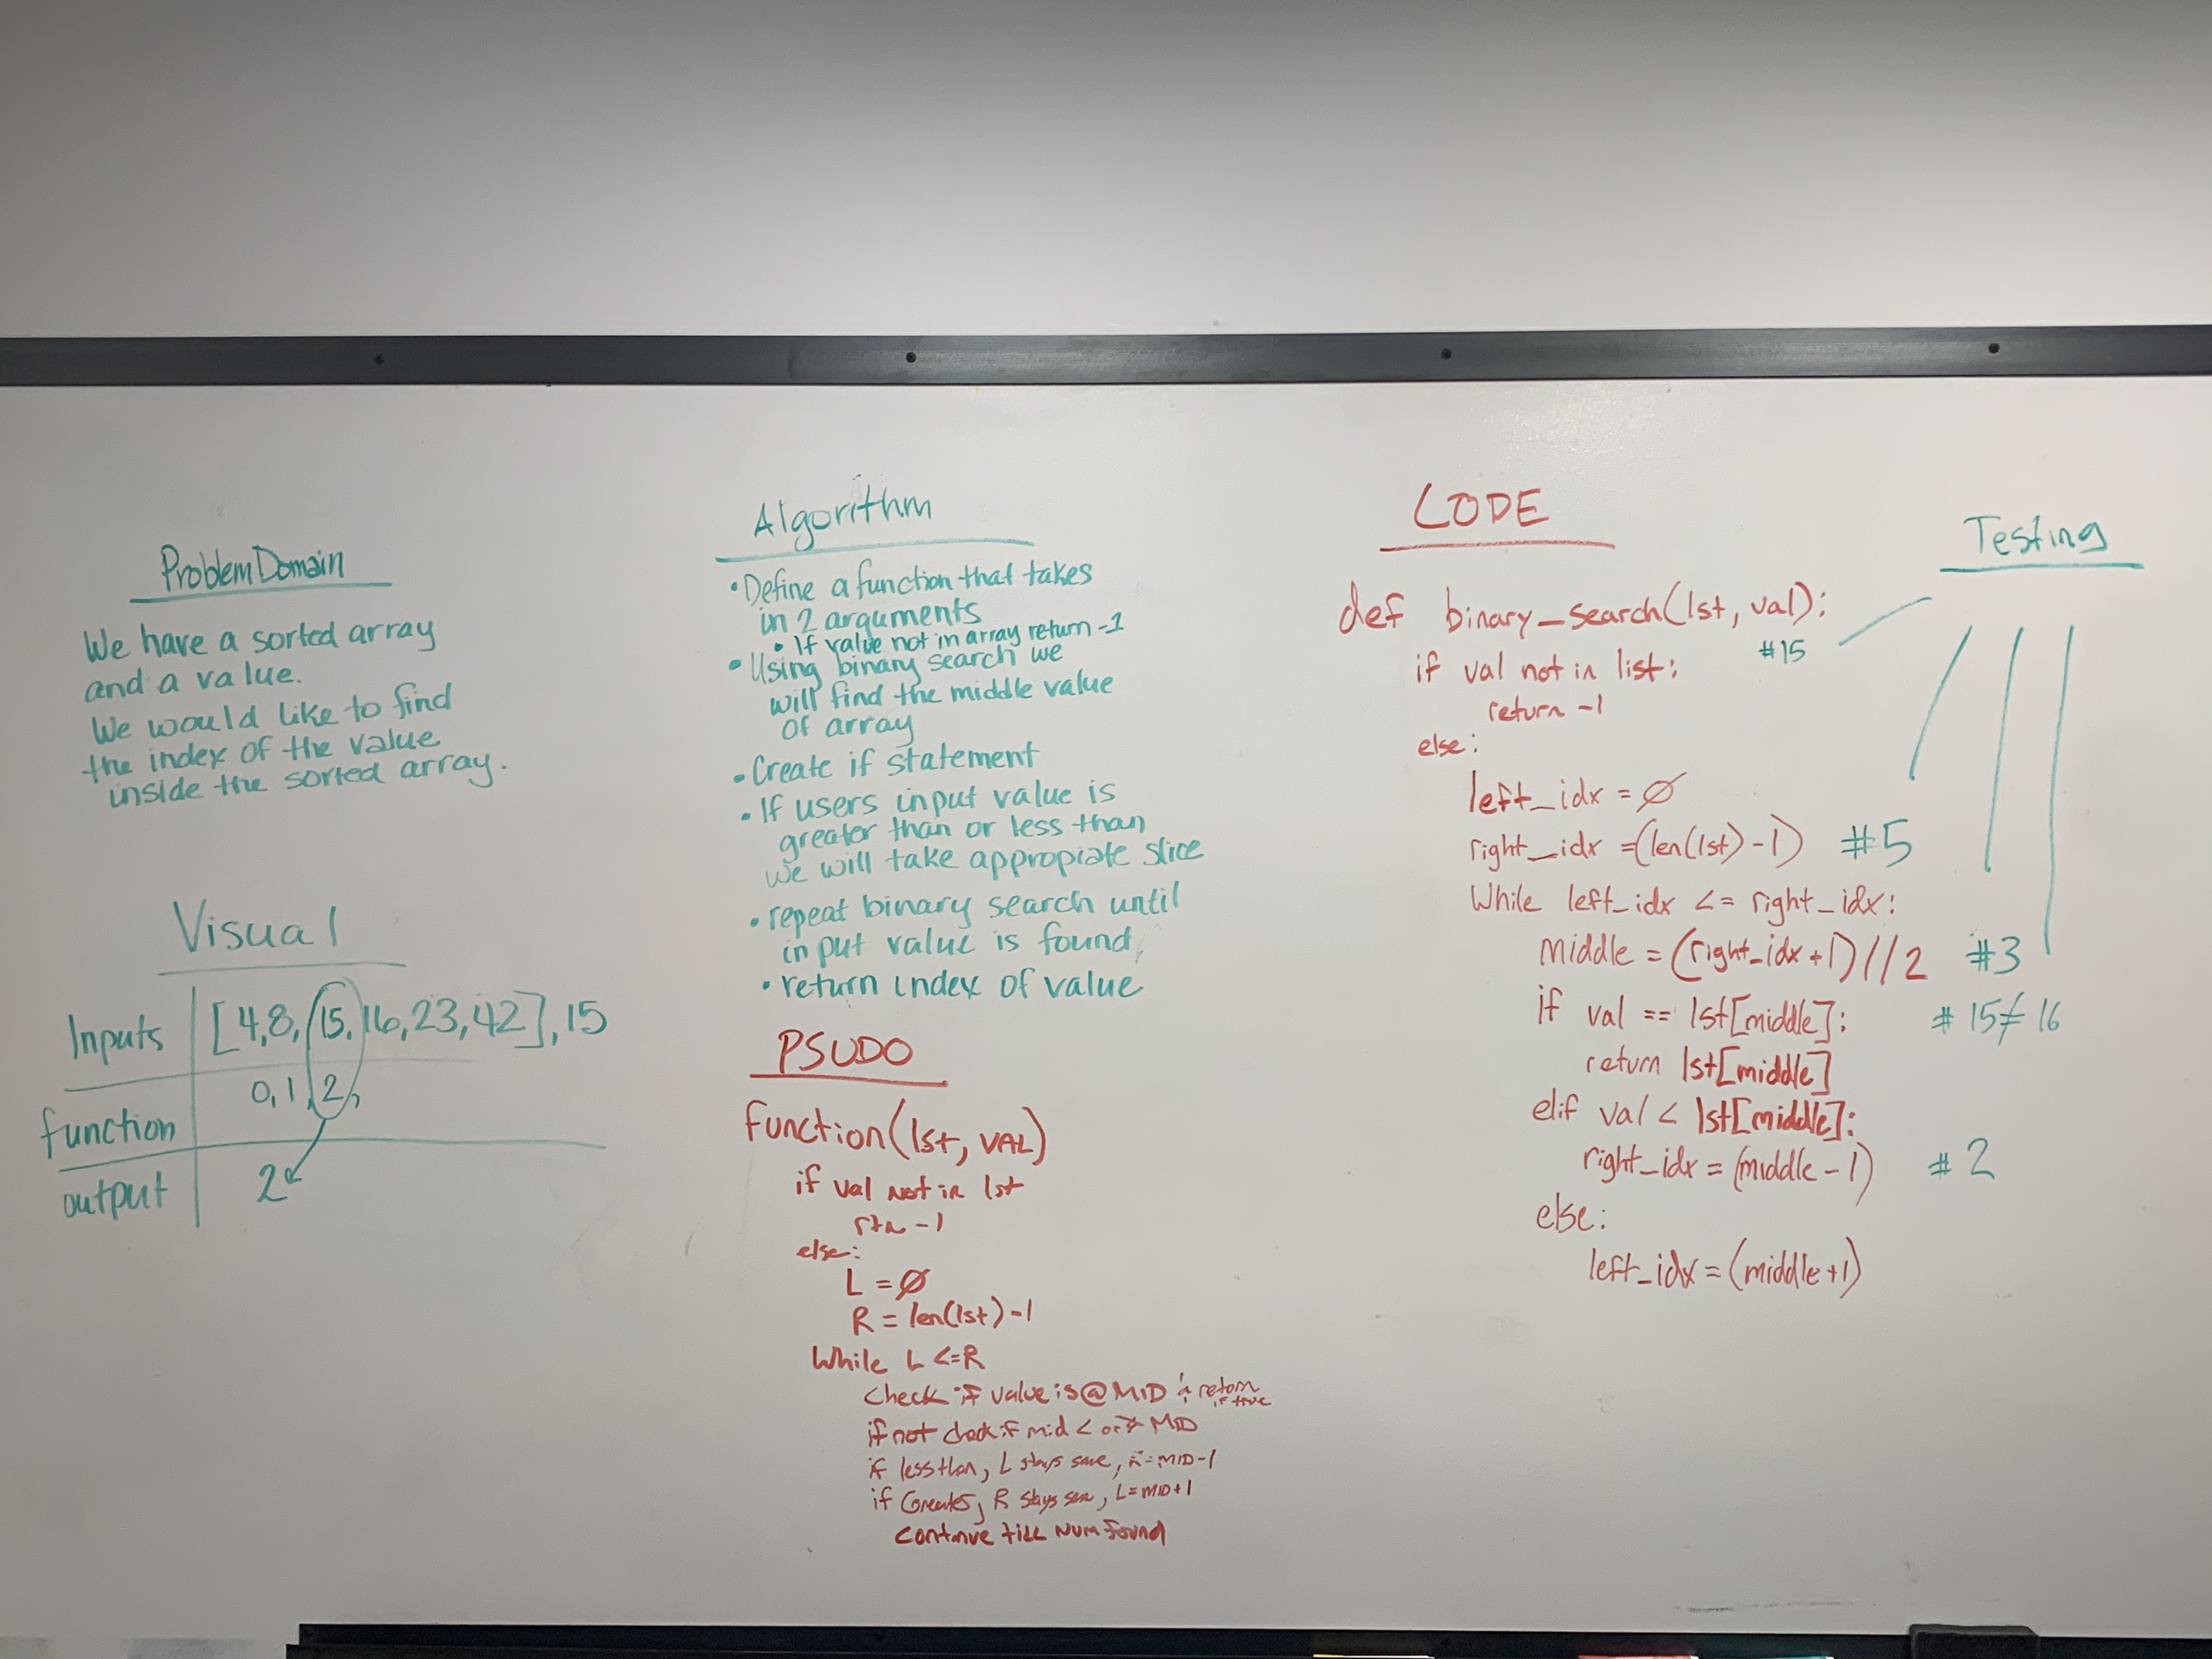 Problem Domain
We have a sorted array
and a value.
We would like to find
the index of the value
inside the sorted array.
Visual
Inputs [4,8,15,16,23,42],15
0,1,2,
function
output 2
Algorithm
• Define a function that takes
in 2 arguments
• If value not in array return -1
• Using binary search we
will find the middle value
of array
• Create if statement
• If users input value is
greater than or less than
we will take appropiate slice
• repeat binary search until
input value is found,
• return index of value
PSUDO
function(lst, VAL)
if val not in lst
rtn -1
else:
L = Ø
R = len(lst)-1
While L <=R
Check if value is @ MID & return
if true
if not check if mid < or > MID
if less than, L stays same, R=MID-1
if Greater, R stays same, L=MID+1
continue till num found
CODE
def binary_search(lst, val):
#15
if val not in list:
return -1
else:
left_idx = Ø
right_idx =(len(lst)-1) #5
While left_idx <= right_idx:
Middle = (right_idx+1)//2 #3
if val == lst[middle]: # 15≠16
return lst[middle]
elif val < lst[middle]:
right_idx = (middle-1) #2
else:
left_idx = (middle+1)
Testing